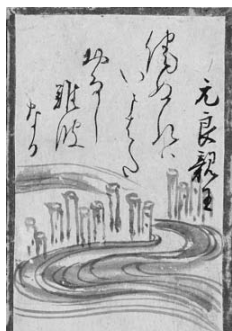 元良親王
侘ぬれは
いまはた
おなし
難波
なる